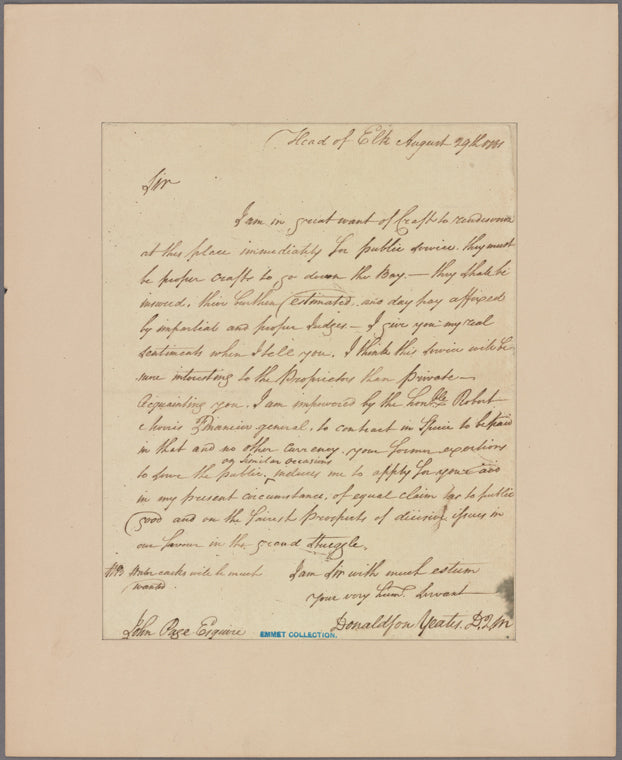 Head of Elk August 29th 1781
Sir
I am in great want of Craft to rendesvous
at this place immediately for public Service. they must
be proper crafts to go down the Bay — they shall be
insured, thier burthen estimated, and day pay affixed
by impartial and proper Judges — I give you my real
sentiments when I tell you, I think this Service will be
more interesting to the Proprietors than private —
Acquainting you, I am impowered by the Honble Robert
Morris Financier general, to contract in Specie to be paid
in that and no other Currency. your former exertions
on Similar occasions
to serve the public, induces me to apply for your aid
in my present circumstance, of equal claim to public
good and on the fairest Prospects of decisive issues in
our favour in the grand Struggle.
NB Water casks will be much
wanted.
I am Sir with much esteem
your very hum. Servant
John Page Esquire
EMMET COLLECTION.
Donaldson Yeates. D.Q.M